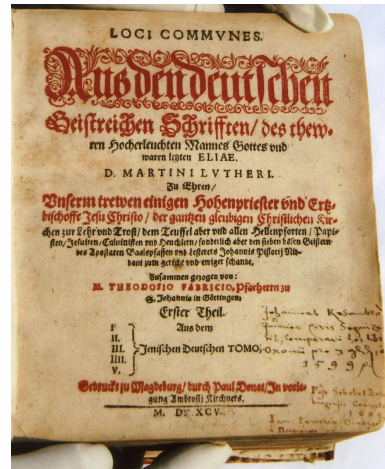 LOCI COMMVNES.
Aus den deutschen
Geistreichen Schrifften/ des thew-
ren Hocherleuchten Mannes Gottes vnd
waren letzten ELIAE.
D. MARTINI LVTHERI.
Zu Ehren/
Vnserm trewen einigen Hohenpriester vnd Ertz-
bischoffe Jesu Christo/ der gantzen gleubigen Christlichen Kir-
chen zur Lehr vnd Trost/ dem Teuffel aber vnd allen Hellenpforten/ Papi-
sten/ Jesuiten/ Caluinisten vnd Heuchlern/ sonderlich aber den sieben bösen Geistern
des Apostaten Baalspfaffen vnd Lesterers Johannis Pistorij Ni-
dani zum gericht vnd ewiger schande,
Zusammen gezogen von:
M. THEODOSIO FABRICIO, Pfarherrn zu
S. Johannis in Göttingen.
Erster Theil.
Aus dem
I
II.
III. Jenischen Deutschen TOMO,
IIII.
V.
1599
Gedruckt zu Magdeburg/ durch Paul Donat/ In vorle-
gung Ambrosij Kirchners.
M. D. XCV.